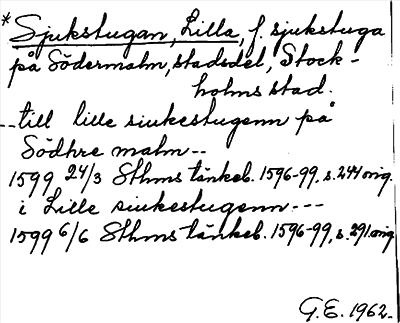 * Sjukstugan, Lilla, f. sjukstuga
på Södermalm, stadsdel, Stock-
holms stad.
--till lille siukestugenn på
Södhre malm--
1599 24/3 Sthms tänkeb. 1596-99, s. 244 orig.
i Lille siukestugenn---
1599 6/6 Sthms tänkeb. 1596-99, s. 291 orig.
G.E. 1962.